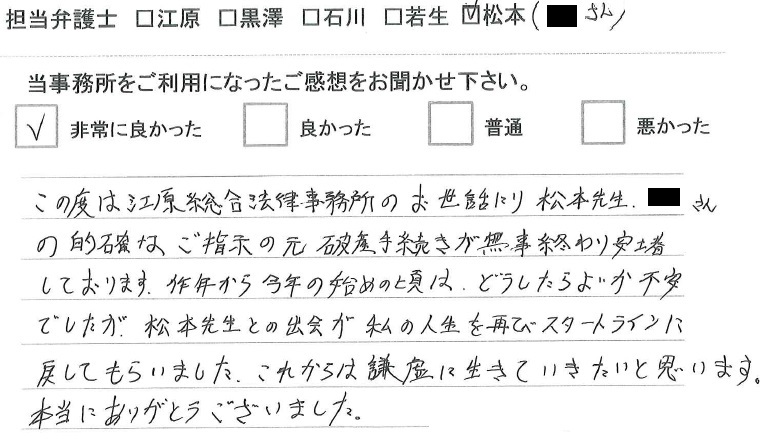 担当弁護士 □江原 □黒澤 □石川 □若生 ☑松本(■さん)
当事務所をご利用になったご感想をお聞かせ下さい。
☑ 非常に良かった □ 良かった □ 普通 □ 悪かった
この度は江原総合法律事務所のお世話になり 松本先生、■さん
の的確な、ご指示の元 破産手続きが無事終わり安堵
しております。昨年から今年の始めの頃は、どうしたらよいか不安
でしたが、松本先生との出会が私の人生を再びスタートラインに
戻してもらいました。これからは謙虚に生きていきたいと思います。
本当にありがとうございました。